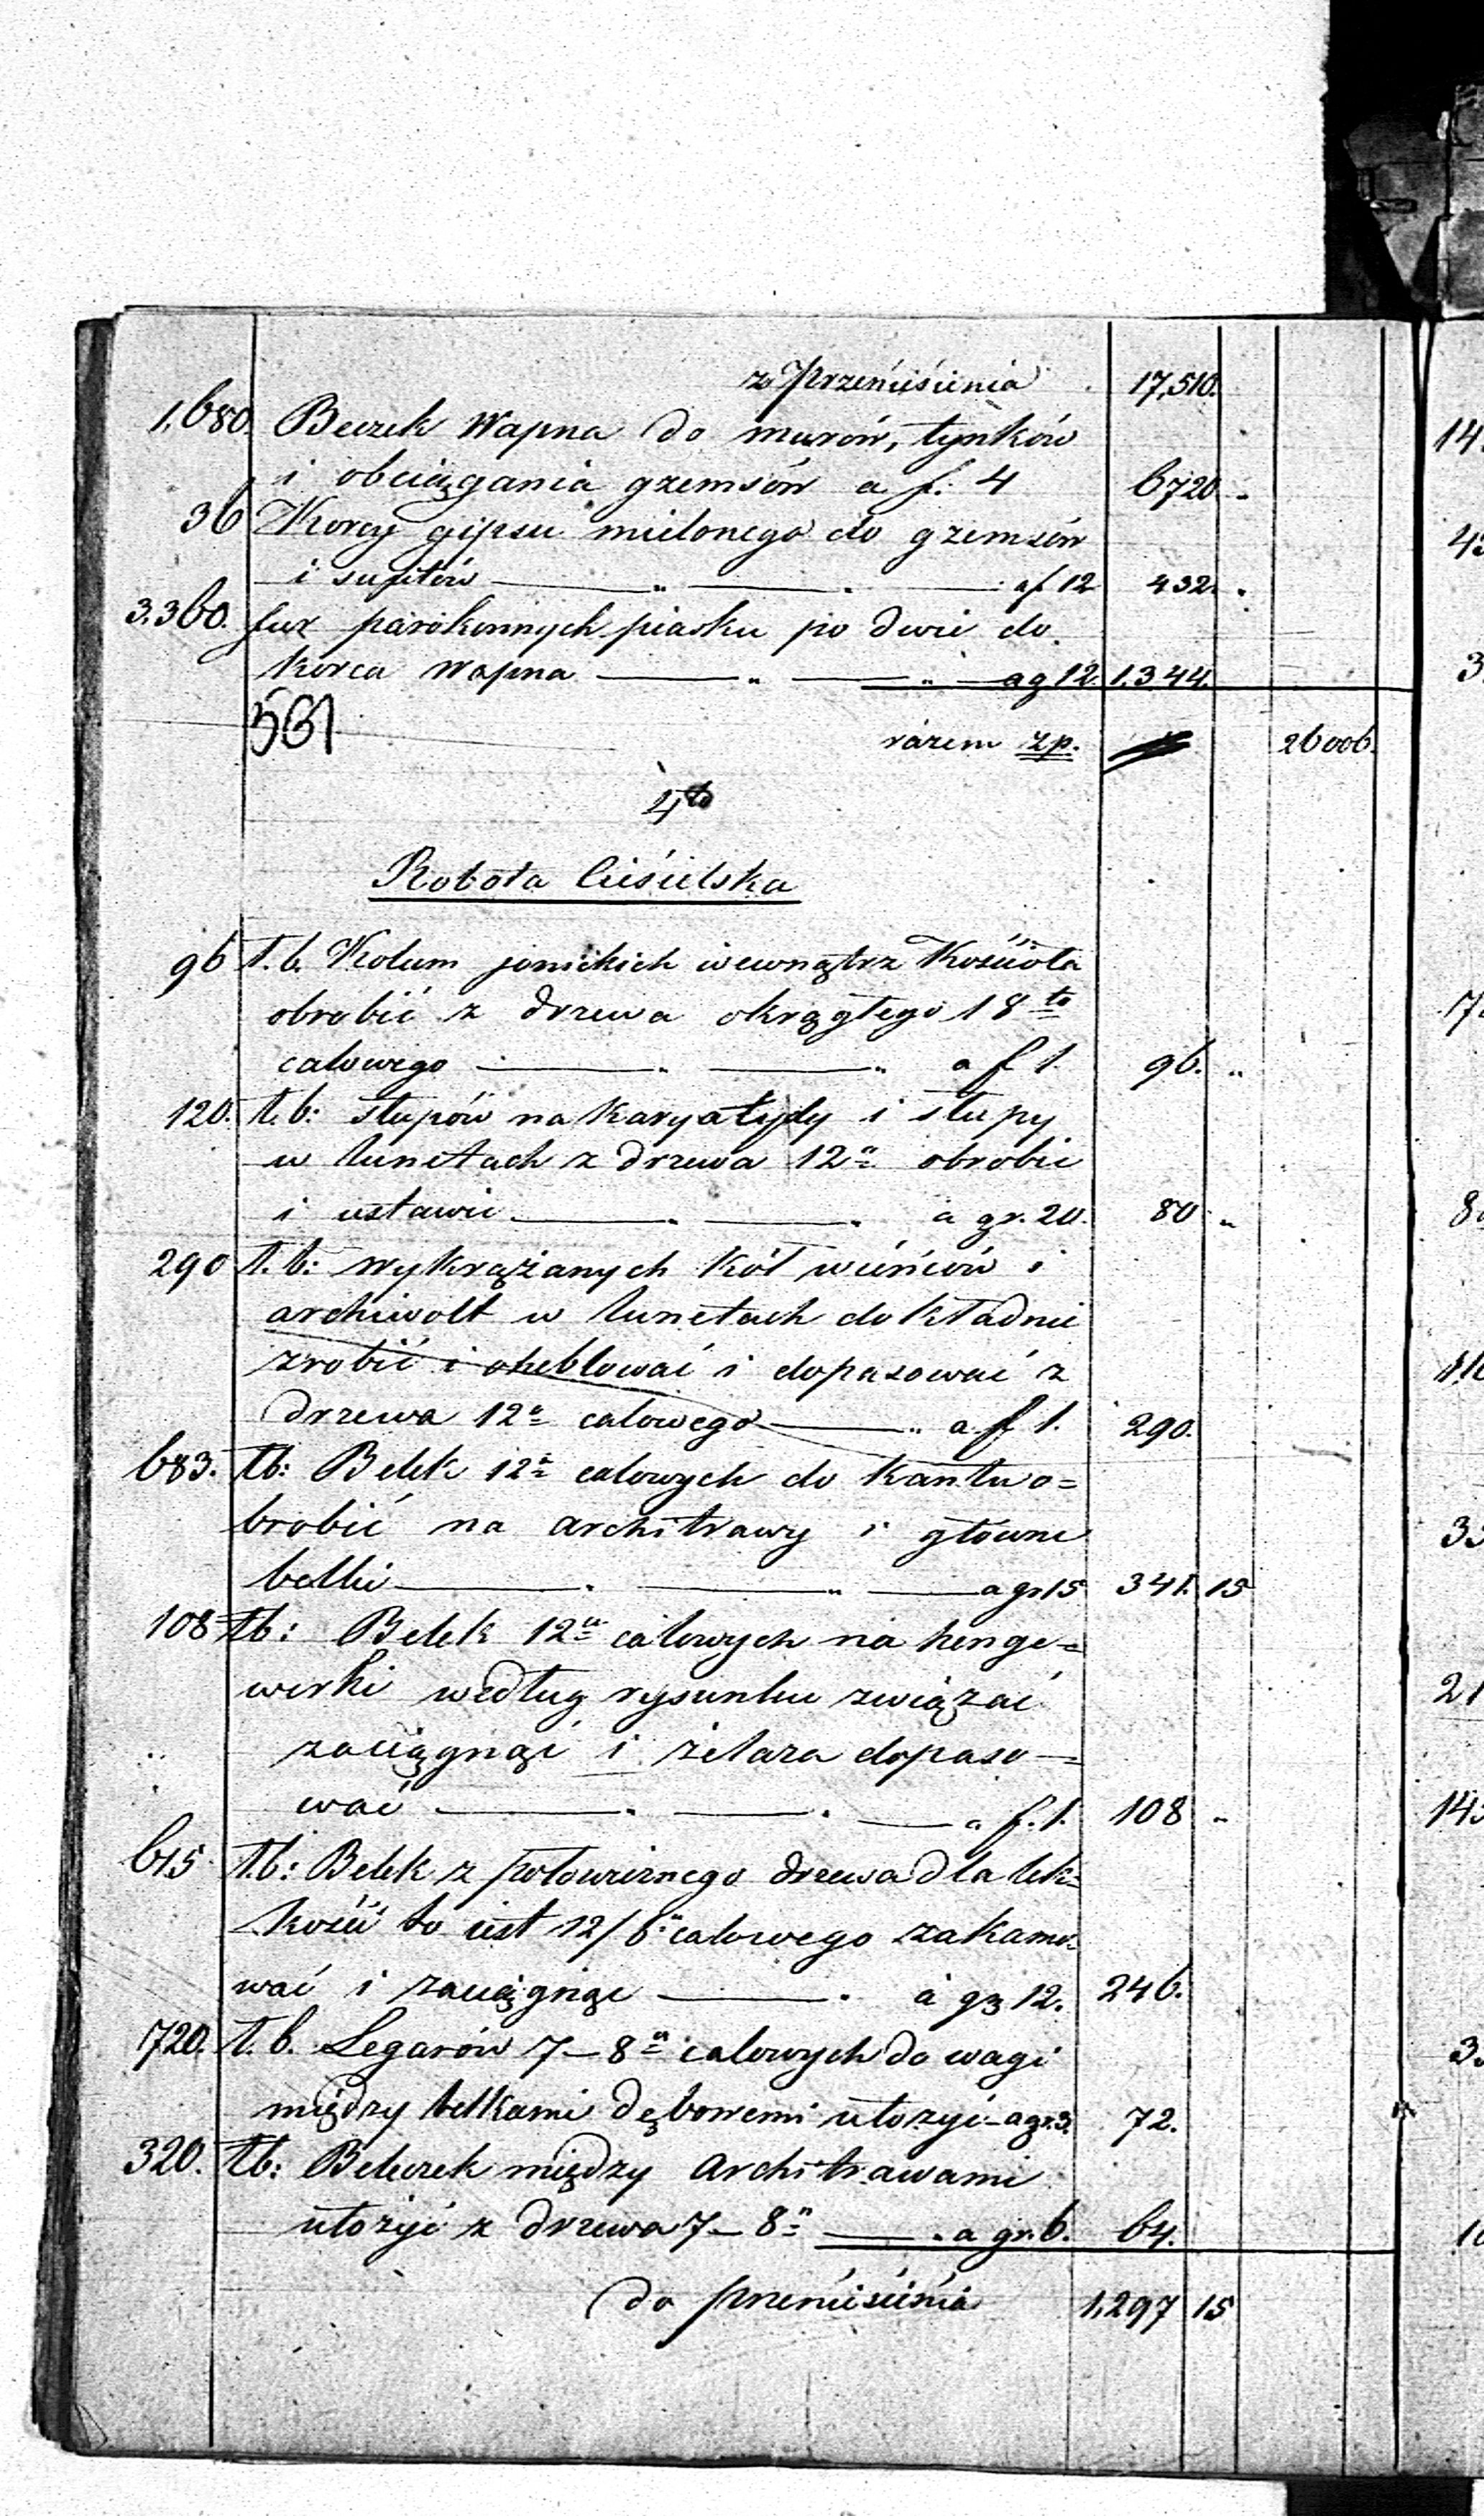 z Przeniesienia 17,510.
1,680. Beczek Wapna do murów, tynków
i obciągania gzemsów a f: 4 6720 "
36 Korcy gipsu mielonego do gzemsów
i sufitów — " — " — a f 12 432. "
3.360. fur parokonnych piasku po dwie do
korca Wapna — " — " — a g 12. 1.344.
561
razem zp. 26006.
4to
Robota Ciesielska
96 t. b. Kolum jonickich wewnątrz Kościoła
obrobić z drzewa okrągłego 18to
calowego — " — " a f 1. 96. "
120. t. b: słupów na Karyatydy i słupy
w lunetach z drzewa 12" obrobić
i ustawić — " — " a gr. 20. 80 "
290 t. b: wykrążanych kół wieńców i
archiwolt w lunetach dokładnie
zrobić i oheblować i dopasować z
drzewa 12" calowego — " a f 1. 290.
683. tb: Belek 12" calowych do Kantu o=
brobić na architrawy i główne
belki — " — " — a gr 15 341. 15
108 tb: Belek 12" calowych na henge=
werki według rysunku związać
zaciągnąć i żelaza dopaso=
wać — " — " — a f. 1. 108 "
615 t.b: Belek z połowicznego drzewa dla lek=
kości to iest 12/6" calowego zakamo=
wać i zaciągnąć — " a gr 12. 246.
720. t. b. Legarów 7–8" calowych do wagi
między belkami dębowemi ułożyć – a gr. 3. 72.
320. tb: Beleczek między Architrawami
ułożyć z drzewa 7–8" — " a gr. 6. 64.
do przeniesienia 1,297 15